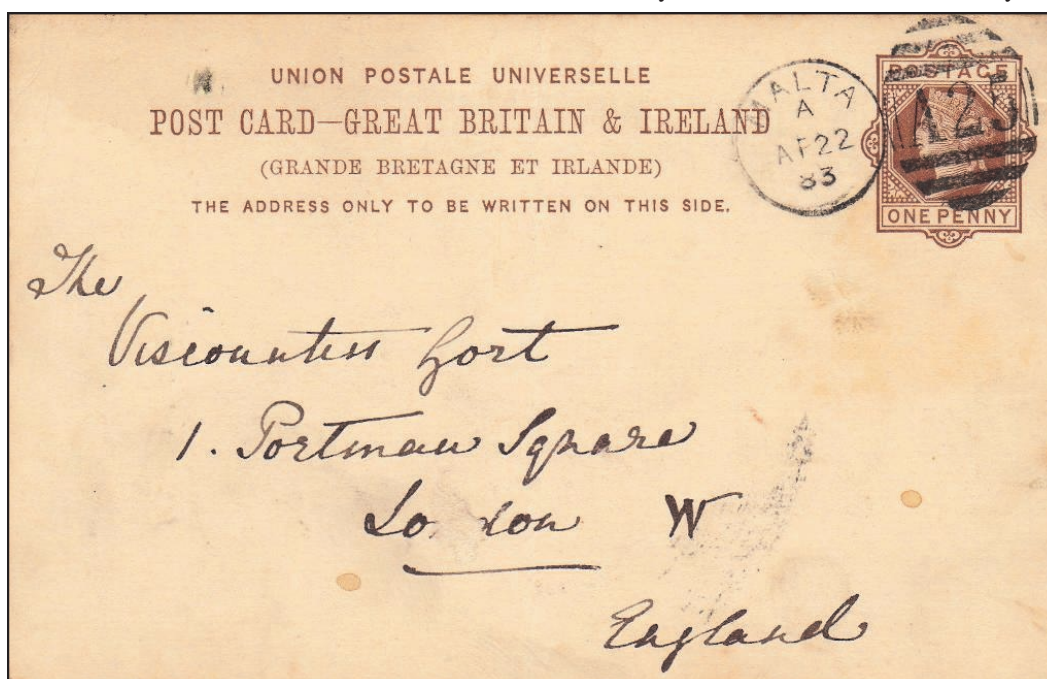 UNION POSTALE UNIVERSELLE
POST CARD—GREAT BRITAIN & IRELAND
(GRANDE BRETAGNE ET IRLANDE)
THE ADDRESS ONLY TO BE WRITTEN ON THIS SIDE.
MALTA
A
AP 22
83
POSTAGE
A25
ONE PENNY
The
Viscountess Gort
1. Portman Square
London W
England